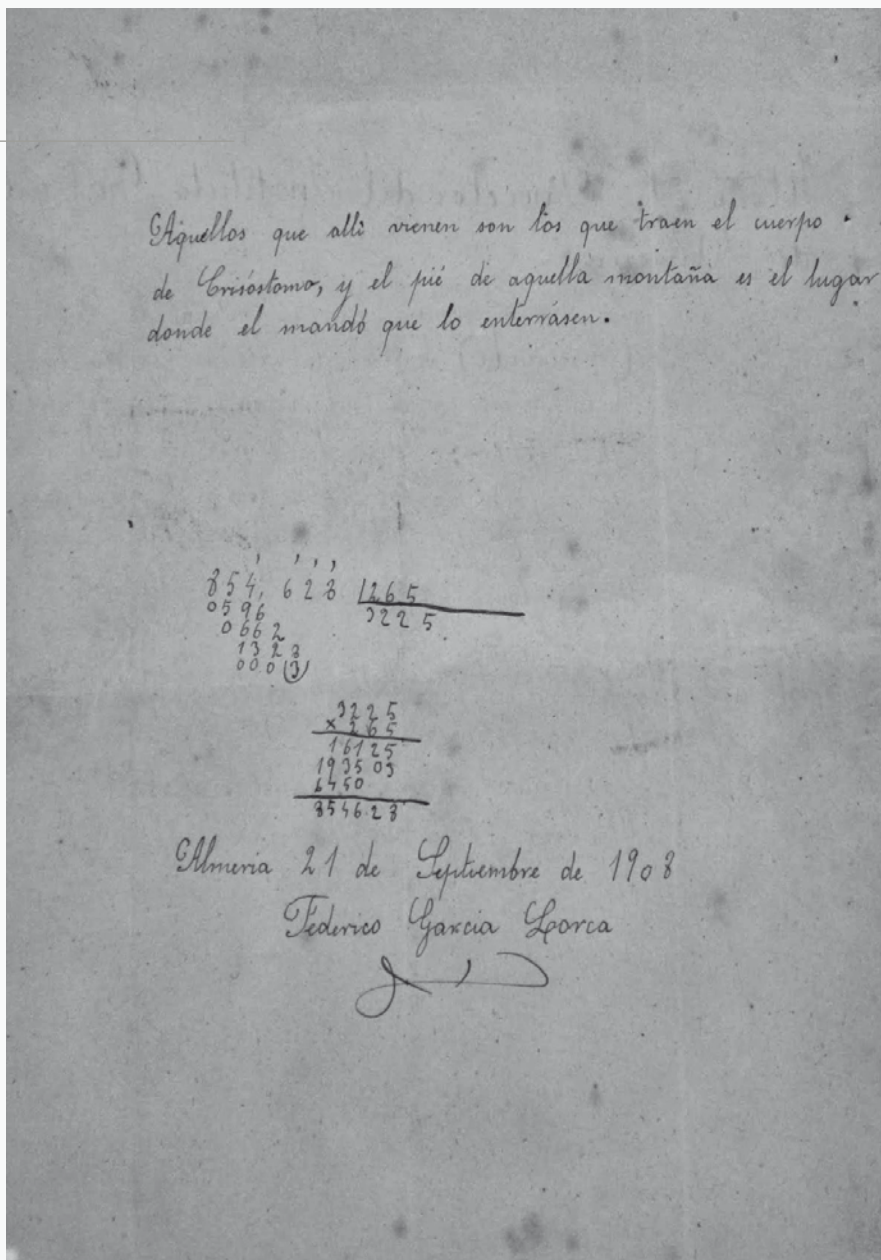 Aquellos que alli vienen son los que traen el cuerpo
de Crisóstomo, y el pié de aquella montaña es el lugar
donde el mandó que lo enterrásen.
854, 628 265
0596 3225
0662
1328
000(3)
3225
x 265
16125
1935 03
6450
854628
Almeria 21 de Septiembre de 1908
Federico Garcia Lorca